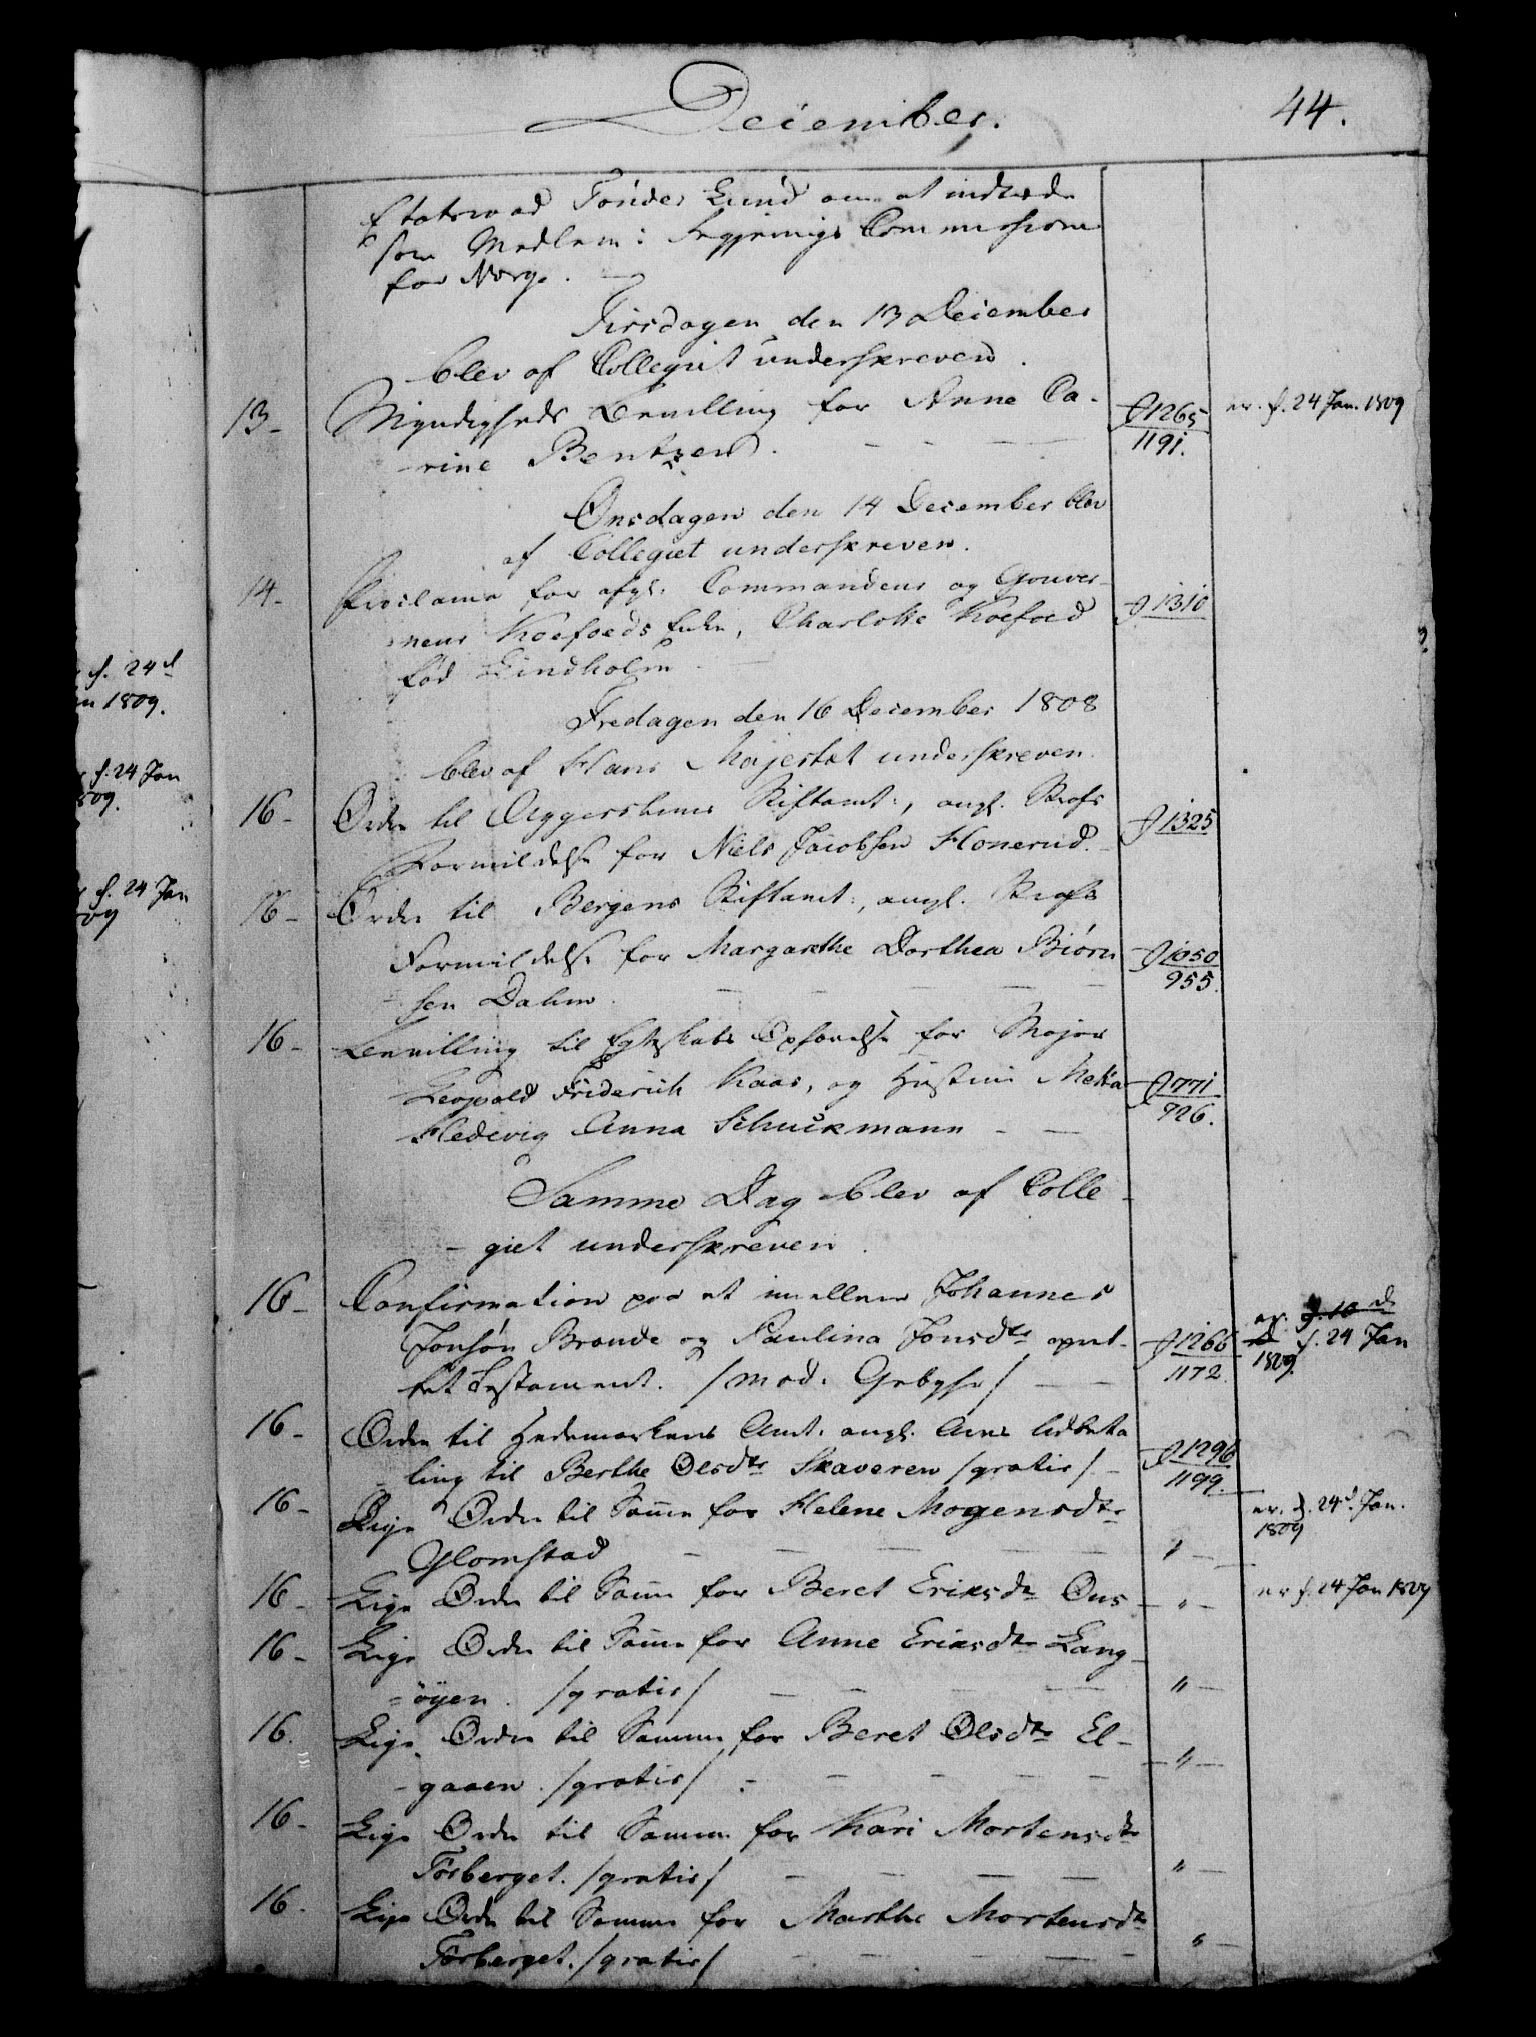 December.
44.
Etatsraad Tønder Lund om at indtræde
som Medlem i Regjerings Commissionen
for Norge.
Tirsdagen den 13 December
blev af Collegiet underskreven.
13- Myndigheds Bevilling for Anne Ca- J 1265 er. f. 24 Jan. 1809
rine Bentzen. 1191.
Onsdagen den 14 December blev
af Collegiet underskreven.
14- Proclama for afg. Commandeur og Gouver-
neur Koefoeds Enke, Charlotte Koefoed J 1310
fød Lindholm
Fredagen den 16 December 1808
blev af Hans Majestæt underskreven.
16- Ordre til Aggershuus Stiftamt, angl. Strafs
Formildelse for Niels Jacobsen Honerud. J 1325
16- Ordre til Bergens Stiftamt, angl. Strafs
Formildelse for Margarethe Dorthea Biørn J 1050
sen Dahm 955.
16- Bevilling til Egteskabs Ophævelse for Major
Leopold Friderich Kaas, og Hustrue Metta J 771
Hedevig Anna Schuckmann 726.
Samme Dag blev af Colle-
giet underskreven.
16- Confirmation paa et imellem Johannes
Jonsøn Braude og Paulina Jonsdtr opret- J 1266 er. f. 24 Jan
tet Testament. /mod. Gebyhr/ 1172. 1809.
16- Ordre til Hedemarkens Amt. angl. Arvs Udbeta
ling til Berthe Olsdtr Skaveren /gratis/- J 1296
1199.
16- Lige Ordre til Samme for Helene Mogensdtr er. f. 24d. Jan.
Glomstad " 1809
16- Lige Ordre til Samme for Beret Eriksdtr Ous- " er f. 24 Jan 1809
16- Lige Ordre til Samme for Anne Eriksdtr Lang-
øyen. /gratis/ "
16. Lige Ordre til Samme for Beret Olsdtr El-
gaaen. /gratis/ "
16- Lige Ordre til Samme for Kari Mortensdtr
Forberget. /gratis/ "
16. Lige Ordre til Samme for Marthe Mortensdtr
Forberget. /gratis/ "
f. 24d
n 1809.
f. 24 Jan
809.
f. 24 Jan
09